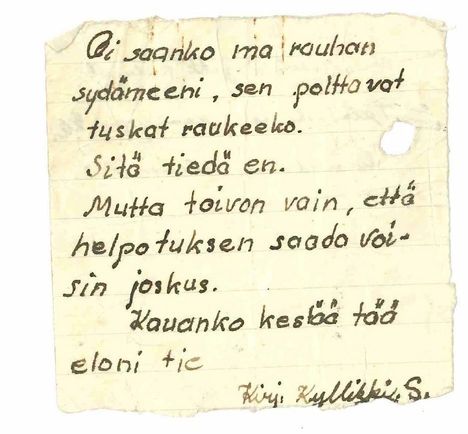 Oi saanko ma rauhan
sydämeeni, sen polttavat
tuskat raukeeko.
Sitä tiedä en.
Mutta toivon vain, että
helpotuksen saada voi-
sin joskus.
Kauanko kestää tää
eloni tie
Kirj. Kyllikki. S.